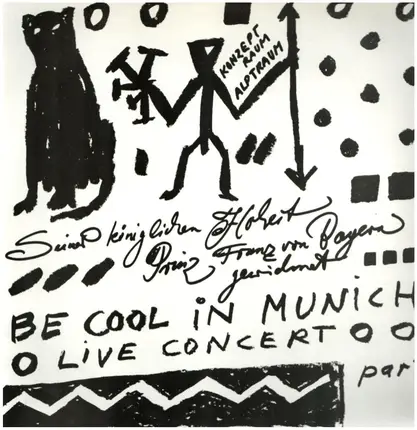 KONZEPT
RAUM
ALPTRAUM
Seiner königlichen Hoheit
Prinz Franz von Bayern
gewidmet
BE COOL iN MUNiCH
LiVE CONCERT
par